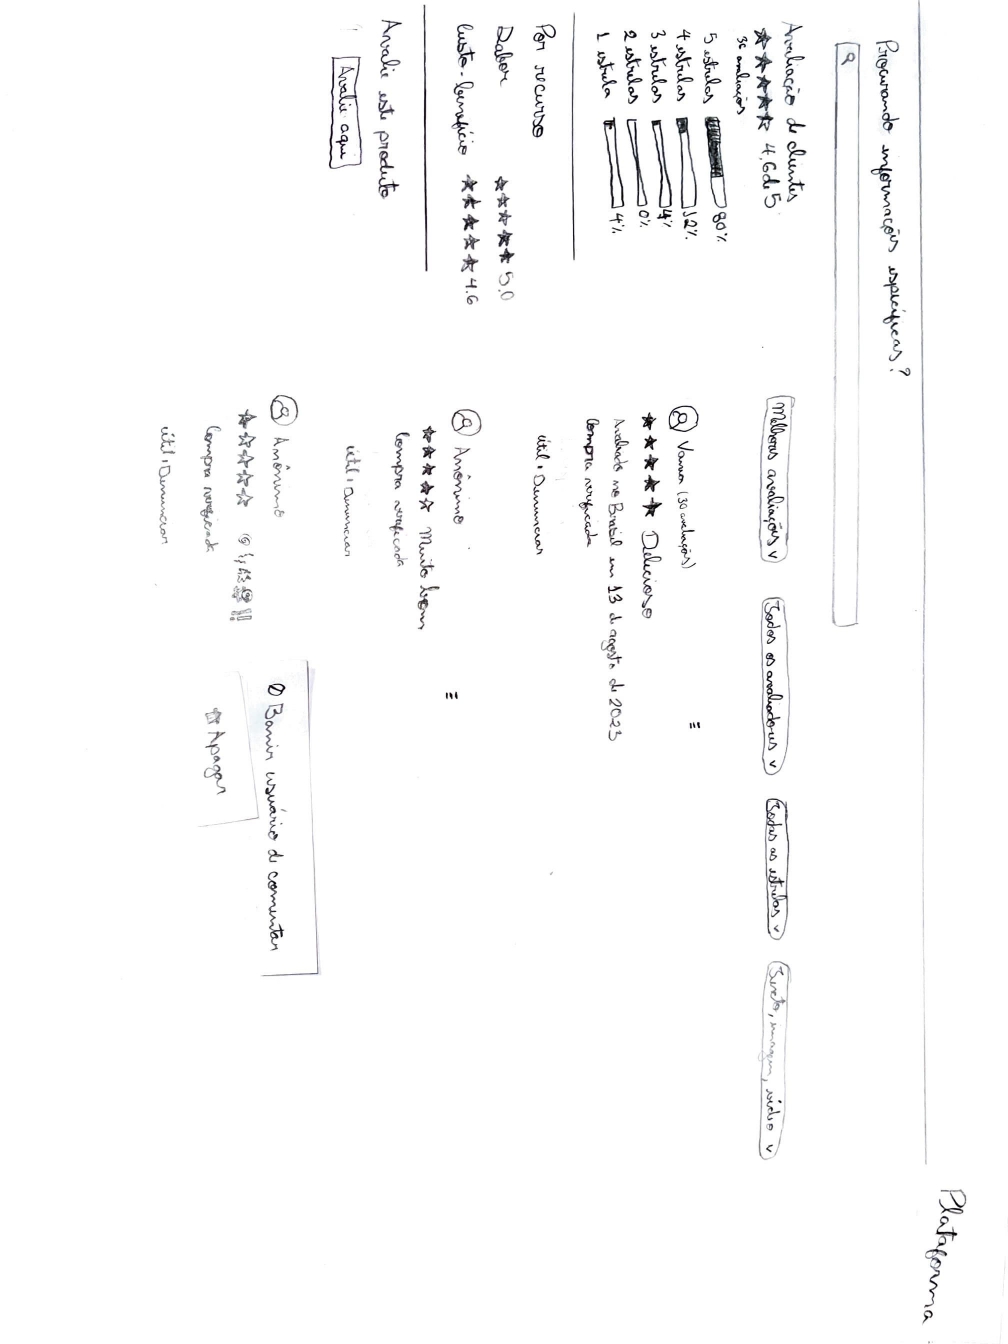 Plataforma
Procurando informações específicas?
Avaliação de clientes
4,6 de 5
36 avaliações
5 estrelas 80%
4 estrelas 12%
3 estrelas 4%
2 estrelas 0%
1 estrela 4%
Por recurso
Sabor 5.0
Custo-benefício 4.6
Avalie este produto
Avalie aqui
Melhores avaliações v
Todos os avaliadores v
Todas as estrelas v
Texto, imagem, vídeo v
(30 avaliações)
Delicioso
Avaliado no Brasil em 13 de agosto de 2023
Compra verificada
útil • Denunciar
Anônimo
Muito bom
Compra verificada
útil • Denunciar
Anônimo
Compra verificada
útil • Denunciar
Banir usuário de comentar
Apagar